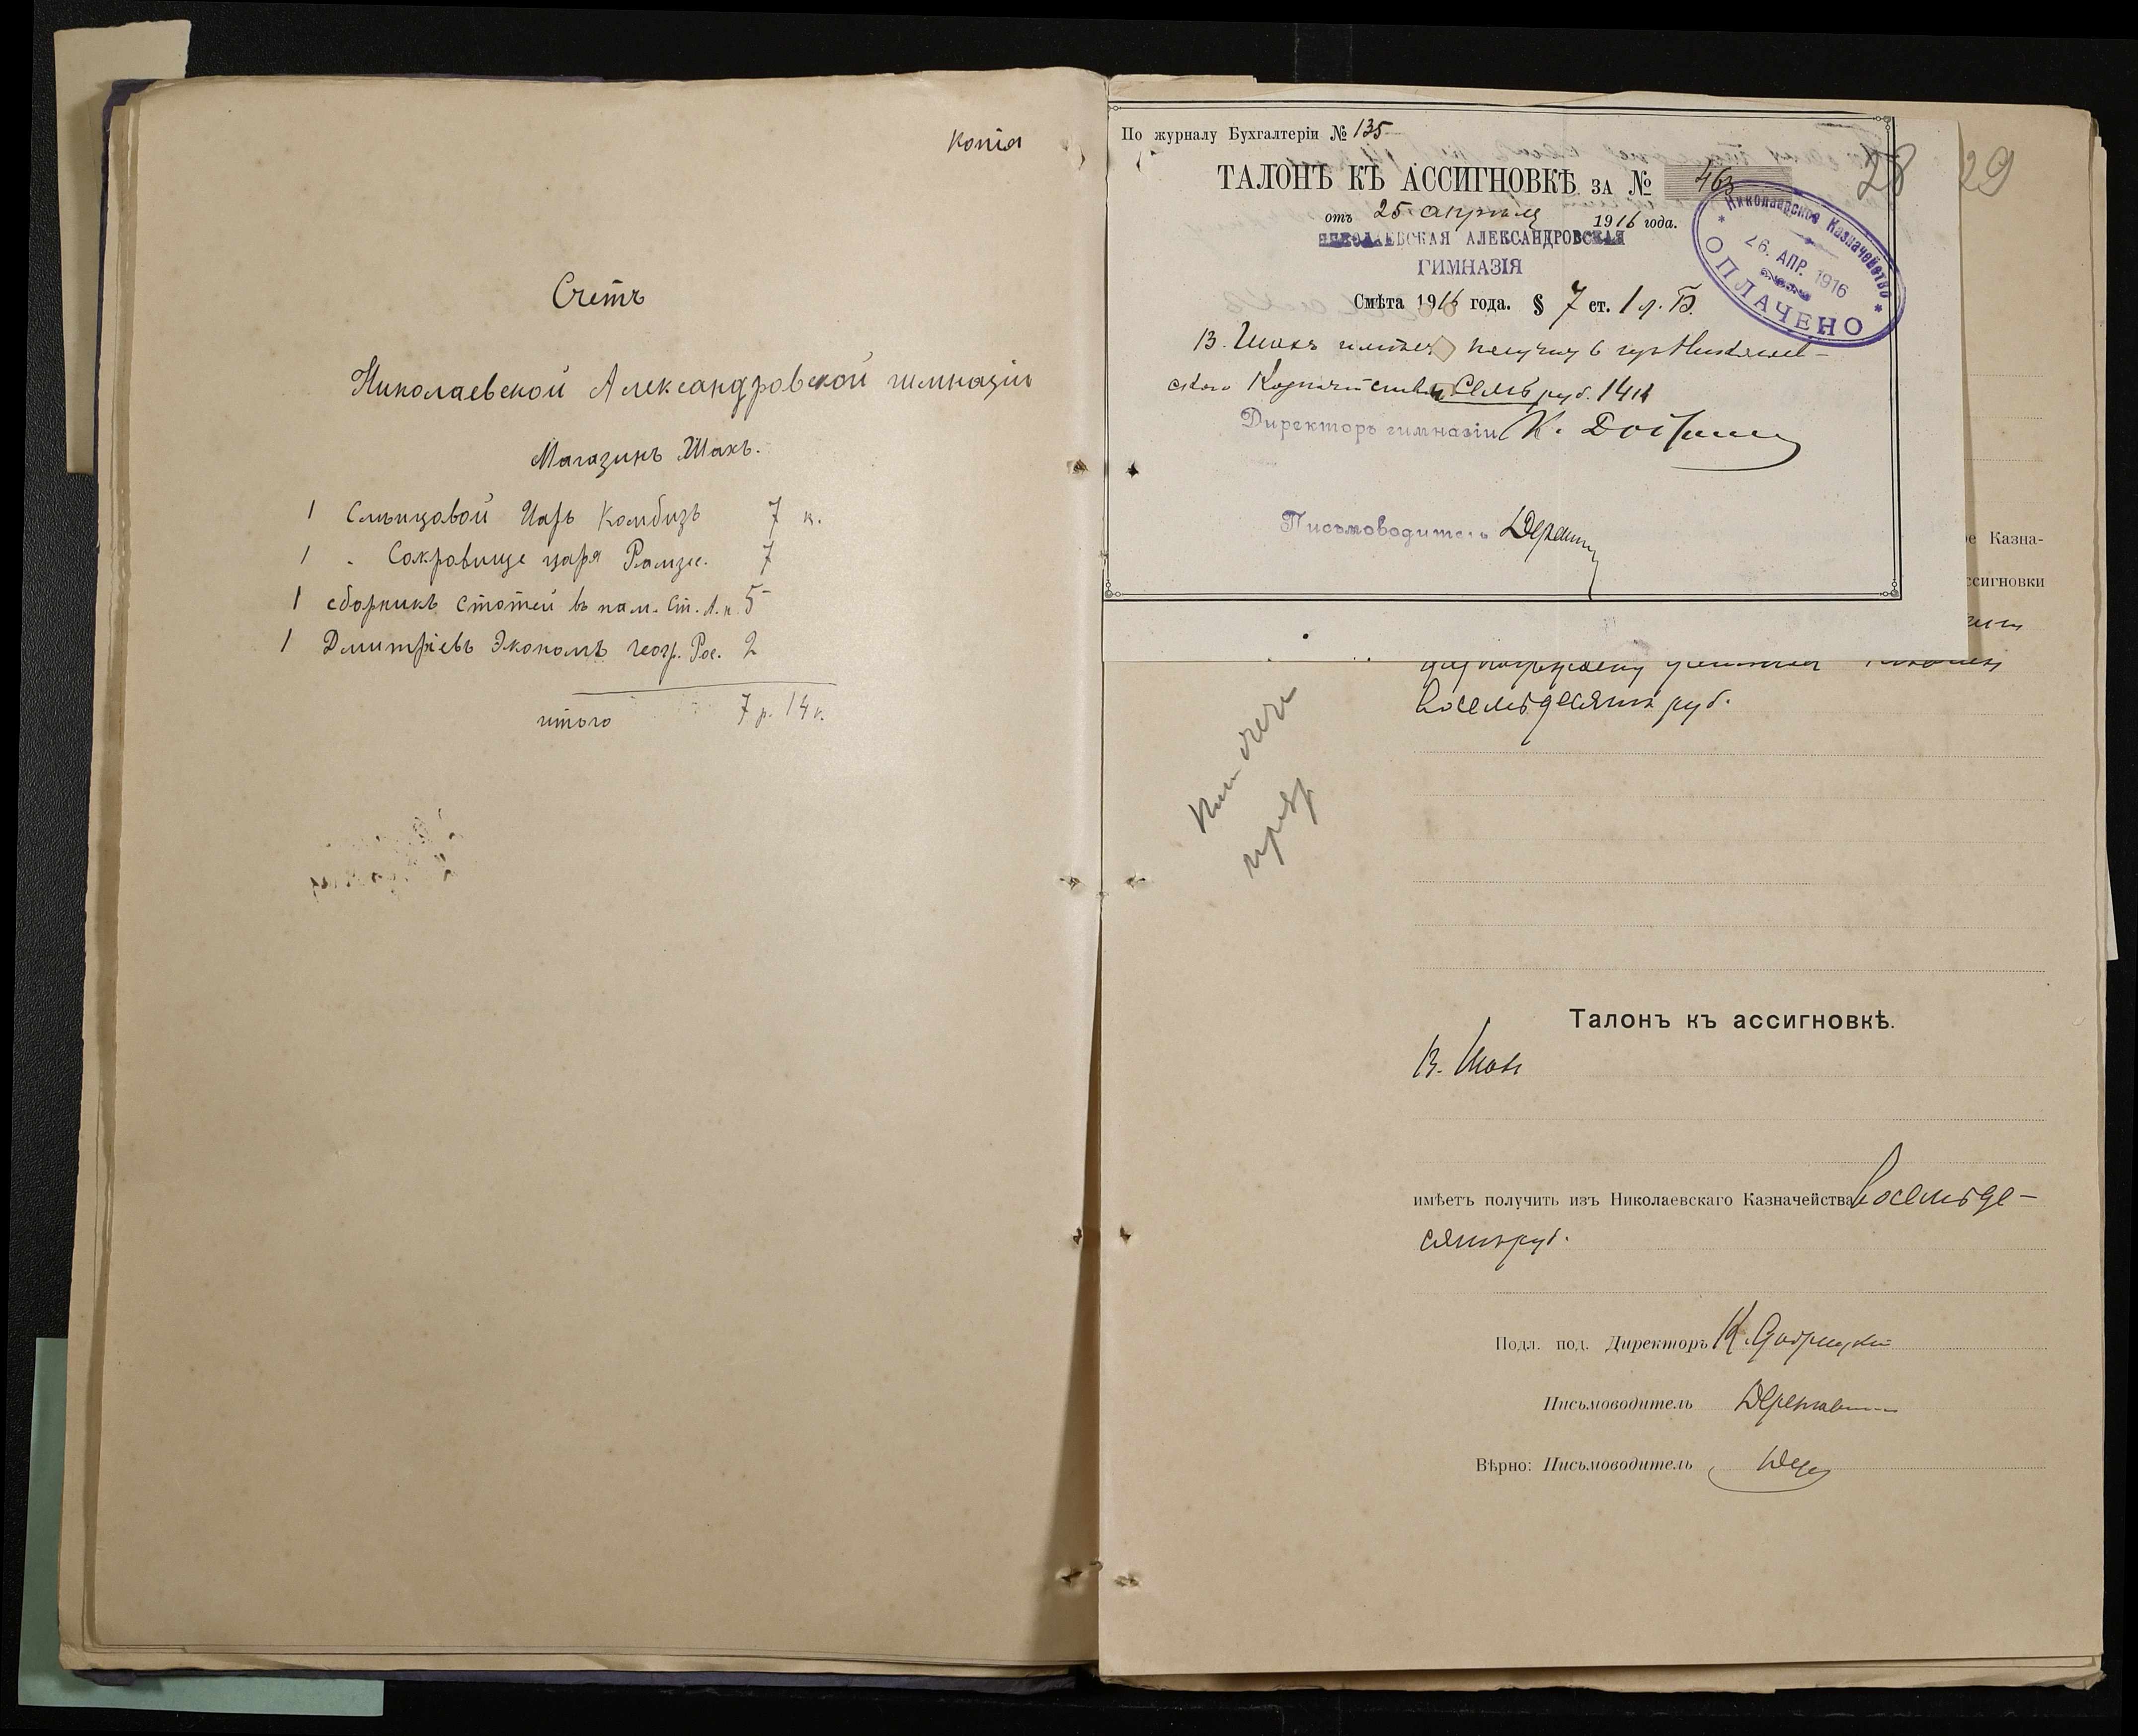 копія
Счетъ
Николаевской Александровской гимназіи
Магазинъ Шахъ.
1 Слѣпцовой Царь Камбизъ 7 к.
1 „ Сокровище царя Рамзе. 7
1 сборникъ статей въ пам. Ст. 5
1 Дмитріевъ Эконом. геогр. Рос. 2
итого 7 р. 14 к.
28
29
По журналу Бухгалтеріи № 135
ТАЛОНЪ КЪ АССИГНОВКѢ ЗА № 463
отъ 25 апрѣля 1916 года.
НИКОЛАЕВСКАЯ АЛЕКСАНДРОВСКАЯ
ГИМНАЗІЯ
Смѣта 1916 года. § 7 ст. 1 л. Б.
Николаевское Казначейство
26. АПР. 1916
ОПЛАЧЕНО
В. Шахъ имѣетъ получить изъ Николаев-
скаго Казначейства Семь руб. 14 к
Директоръ гимназіи К.
Письмоводитель
е Казна-
ссигновки
Восемьдесятъ руб.
Талонъ къ ассигновкѣ.
В. Шахъ
имѣетъ получить изъ Николаевскаго Казначейства Восемьде-
сятъ руб.
Подл. под. Директоръ К.
Письмоводитель
Вѣрно: Письмоводитель